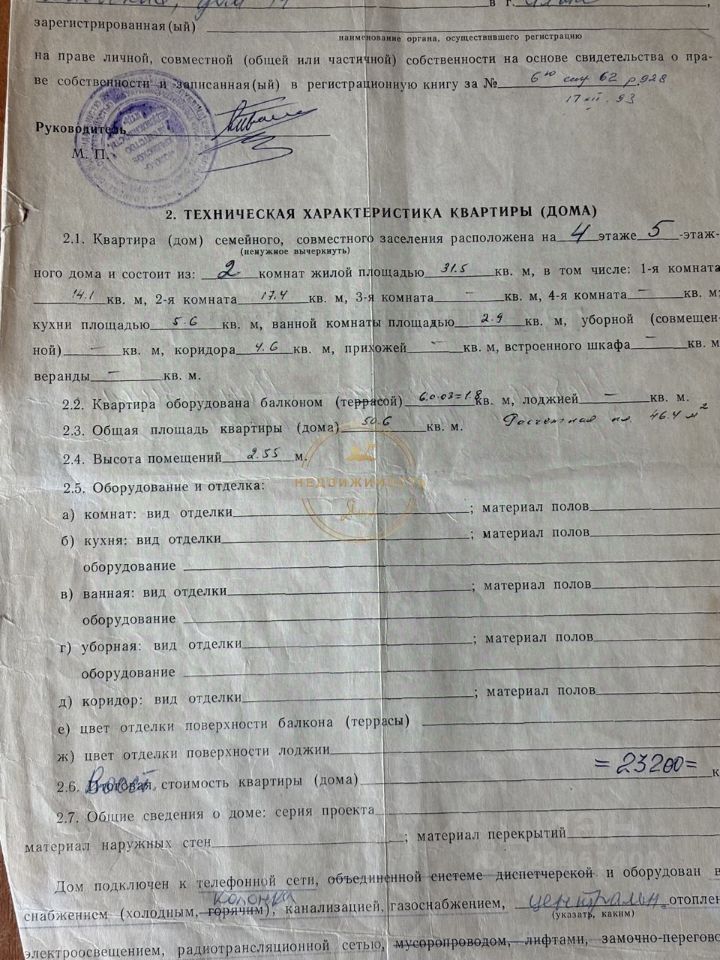 дом 14 в г. Ялта,
зарегистрированная(ый)
наименование органа, осуществившего регистрацию
на праве личной, совместной (общей или частичной) собственности на основе свидетельства о пра-
ве собственности и записанная(ый) в регистрационную книгу за № 6ю стр 62 р.928
17 III. 93
Руководитель
М. П.
2. ТЕХНИЧЕСКАЯ ХАРАКТЕРИСТИКА КВАРТИРЫ (ДОМА)
2.1. Квартира (дом) семейного, совместного заселения расположена на 4 этаже 5-этаж-
(ненужное вычеркнуть)
ного дома и состоит из: 2 комнат жилой площадью 31.5 кв. м, в том числе: 1-я комната
14.1 кв. м, 2-я комната 17.4 кв. м, 3-я комната — кв. м, 4-я комната — кв. м;
кухни площадью 5.6 кв. м, ванной комнаты площадью 2.9 кв. м, уборной (совмещен-
ной) — кв. м, коридора 4.6 кв. м, прихожей — кв. м, встроенного шкафа — кв. м
веранды — кв. м.
2.2. Квартира оборудована балконом (террасой) 6.0·03=1.8 кв. м, лоджией — кв. м.
2.3. Общая площадь квартиры (дома) 50.6 кв. м. Расчетная пл. 46.4 м²
2.4. Высота помещений 2.55 м.
НЕДВИЖИМОСТЬ
2.5. Оборудование и отделка:
а) комнат: вид отделки ; материал полов
б) кухня: вид отделки ; материал полов
оборудование
в) ванная: вид отделки ; материал полов
оборудование
г) уборная: вид отделки ; материал полов
оборудование
д) коридор: вид отделки ; материал полов
е) цвет отделки поверхности балкона (террасы)
ж) цвет отделки поверхности лоджии
2.6. Восст. стоимость квартиры (дома) =23200= к
2.7. Общие сведения о доме: серия проекта
материал наружных стен ; материал перекрытий
Дом подключен к телефонной сети, объединенной системе диспетчерской и оборудован в
колонка
снабжением (холодным, горячим), канализацией, газоснабжением, централен. отоплен
(указать, каким)
электроосвещением, радиотрансляционной сетью, мусоропроводом, лифтами, замочно-перегово